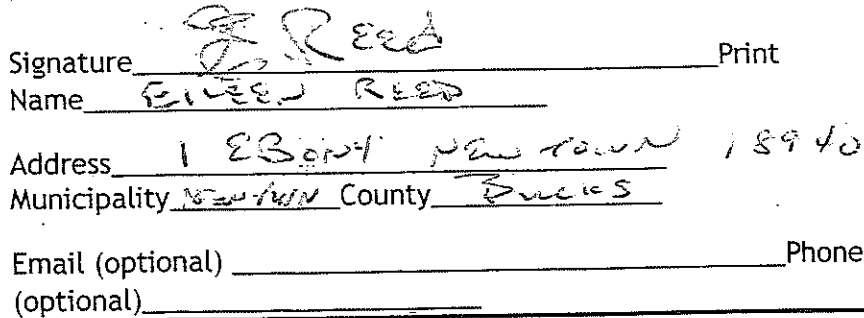 Signature E Reed Print
Name EILEEN REED
Address 1 EBONY NEWTOWN 18940
Municipality Newtown County Bucks
Email (optional) Phone
(optional)